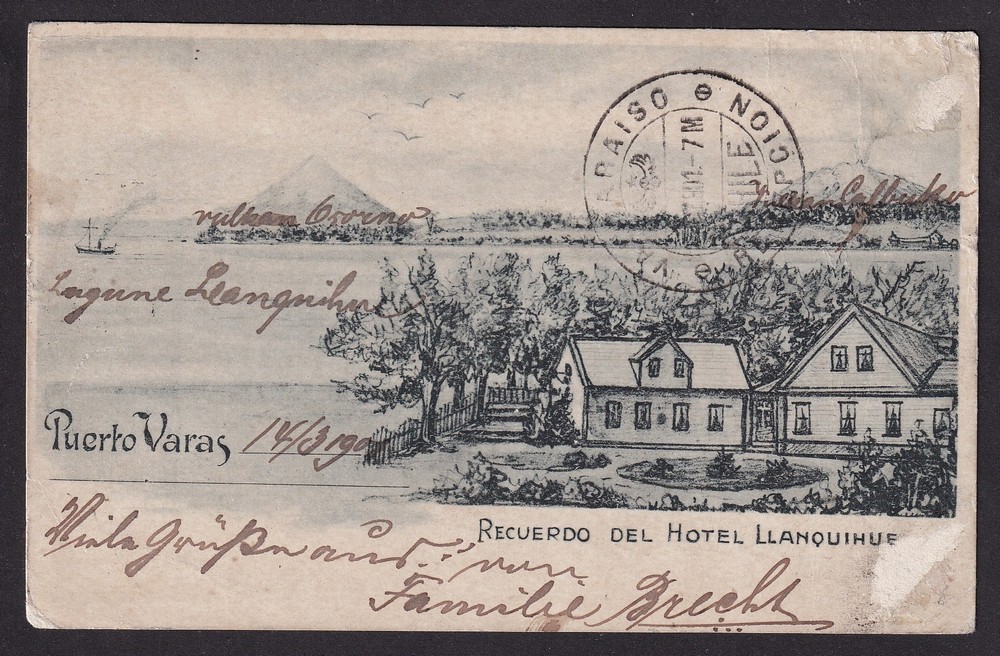 VALPARAISO RECEPCION
7M
CHILE
vulkan Osorno
Calbuko
Lagune Llanquihue
Puerto Varas 14/3 190
RECUERDO DEL HOTEL LLANQUIHUE
Viele Grüße aus! von
Familie Brecht